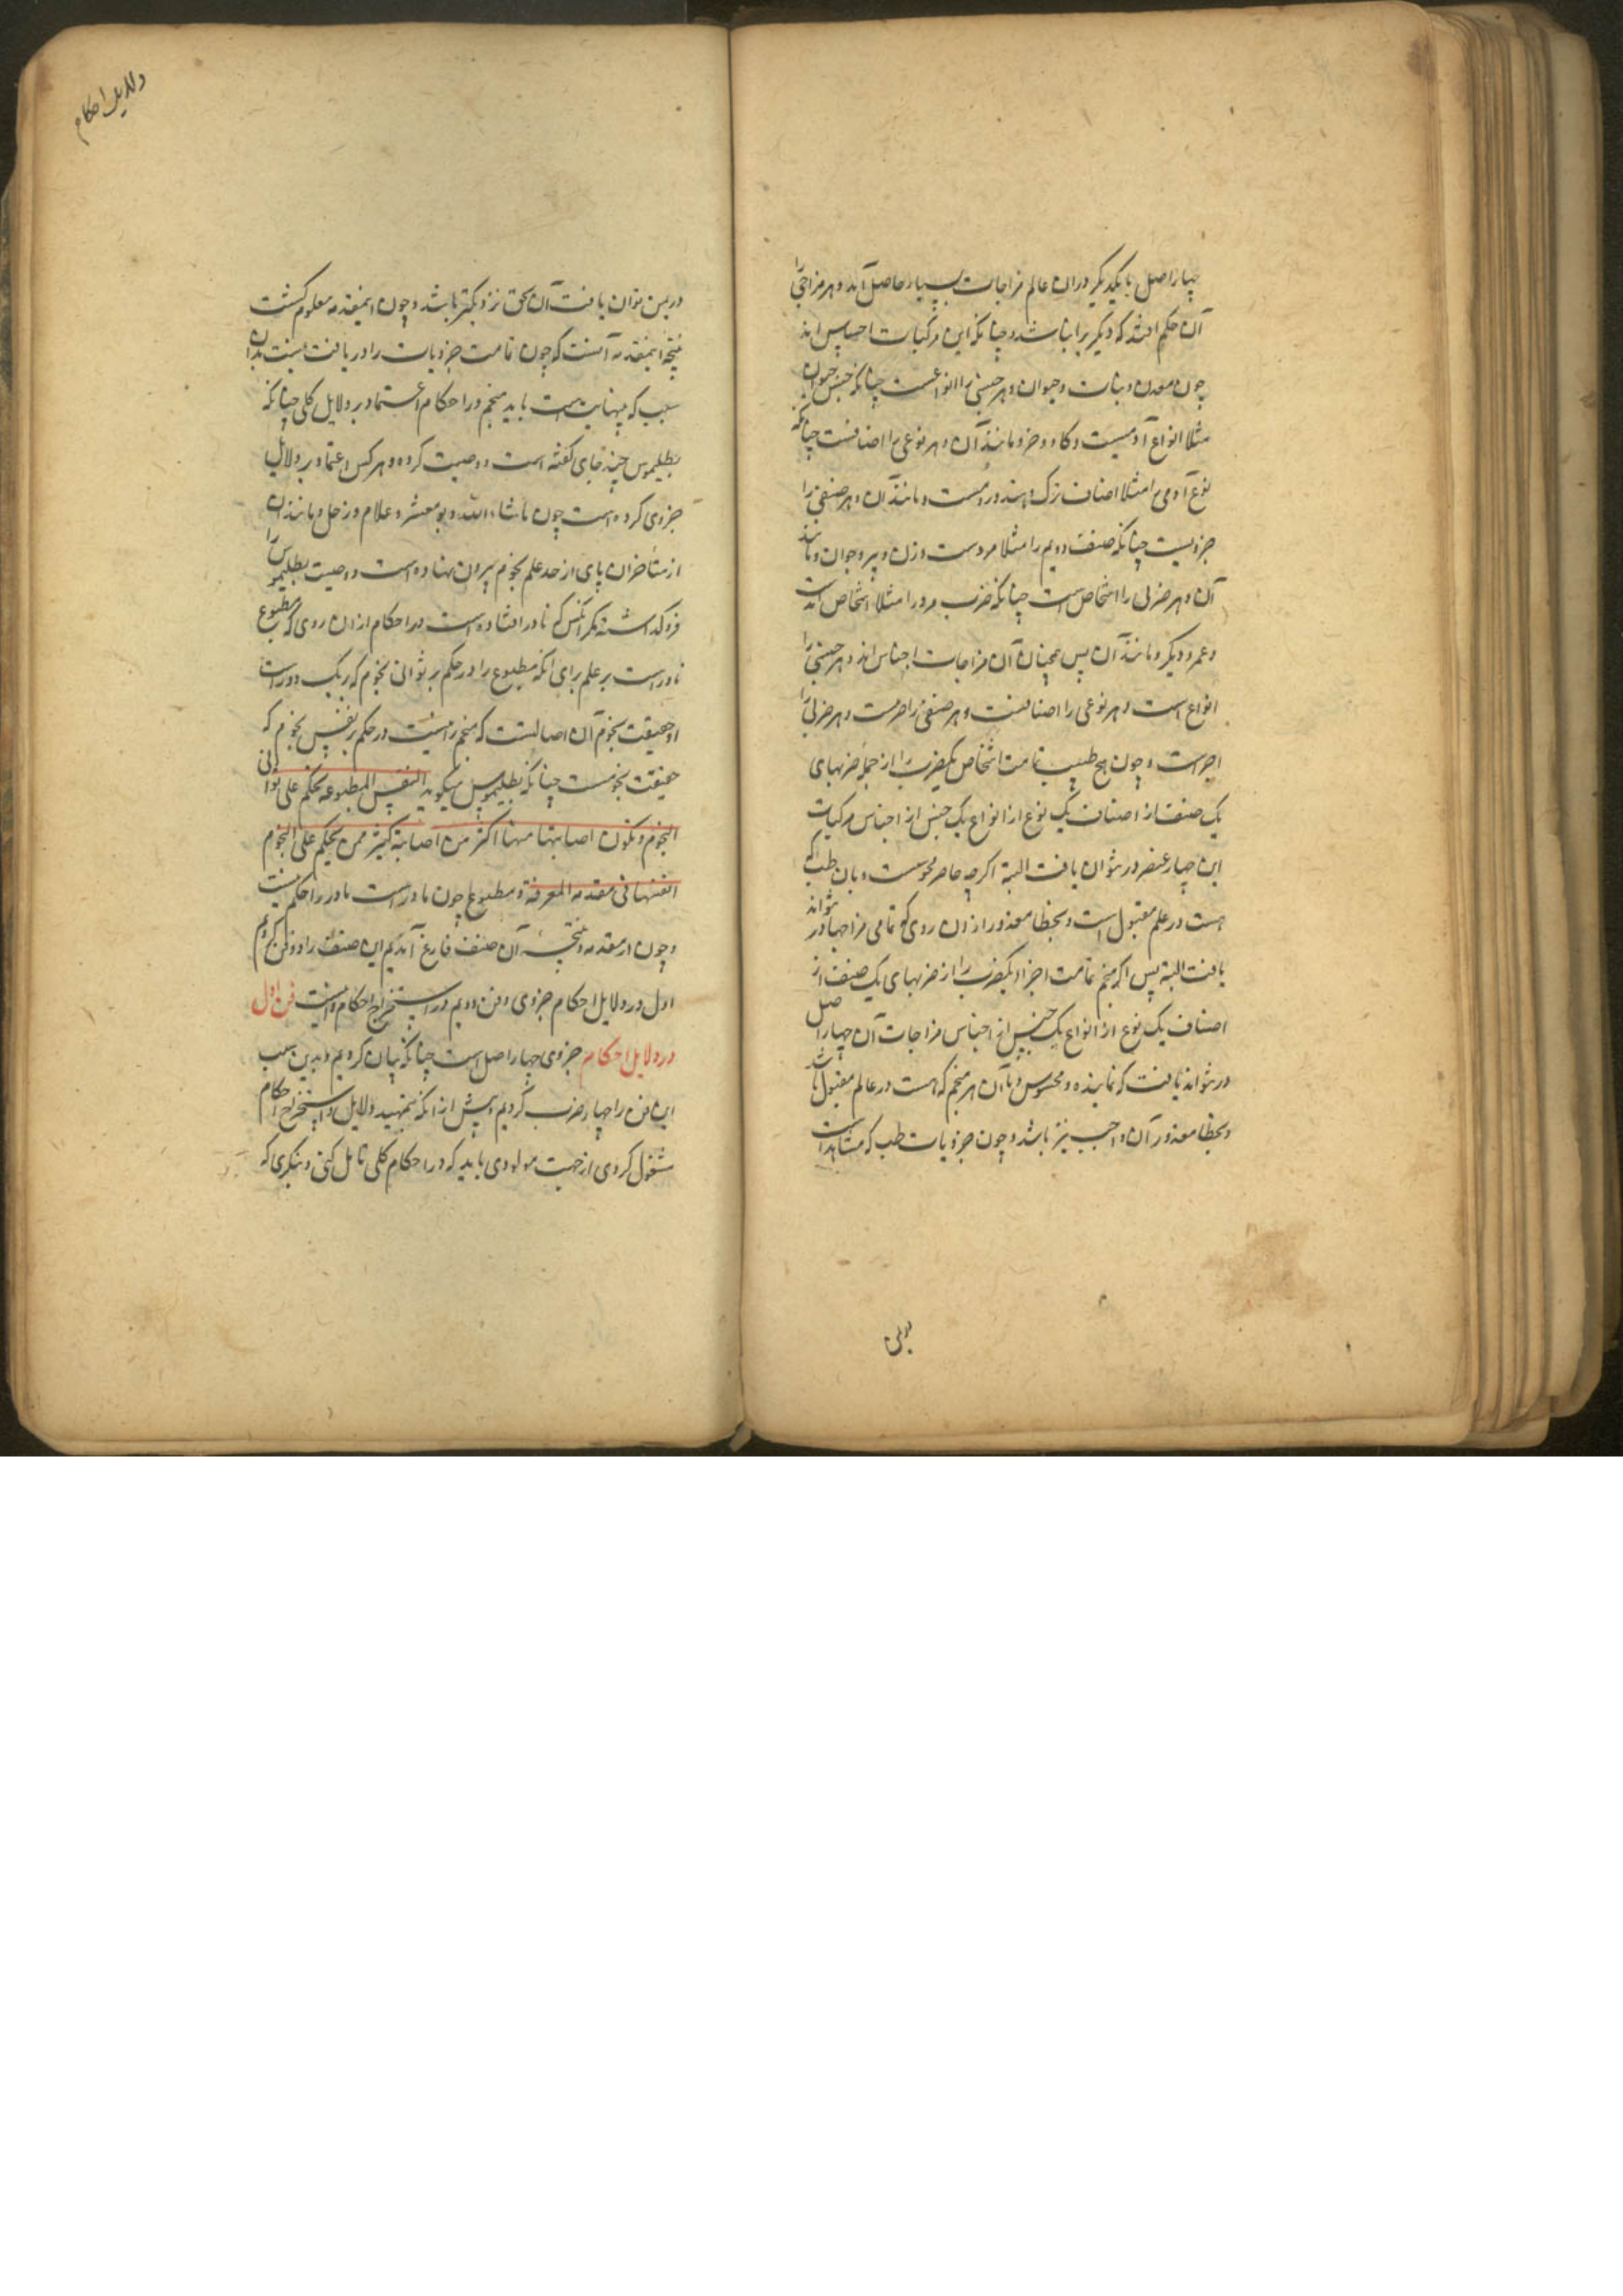 چهار اصل با یکدیگر در ان عالم مزاجات بسیار حاصل آید و هر مزاجی را
آن حکم افتد که دیگر یرا نباشد و چنانکه این مرکبات اجناس اند
چون معدن و نبات و حیوان و هر جنسی را انواعست چنانکه جنس حیوان
مثلا انواع آدمیست و کاو و خر و مانند آن و هر نوعی را اصنافست چنانکه
نوع آدمی را مثلا اصناف ترک و هند و رومست و مانند آن و هر صنفی را
جزویست چنانکه صنف دویم را مثلا مردست و زن و پیر و جوان و مانند
آن و هر ضربی را اشخاص است چنانکه ضرب مرد را مثلا اشخاص
و عمر و دیگر و مانند آن پس همچنان آن مزاجات اجناس اند و هر جنسی را
انواع است و هر نوعی را اصنافست و هر صنفی را و هر ضربی را
اجزاست و چون هیچ طبیب تمامت اشخاص یکضرب را از جمله ضربهای
یک صنف از اصناف یک نوع از انواع یک جنس از اجناس مرکبات
این چهار عنصر در نتوان یافت البته اکرچه حاضر محسوست و بان طب که
هست در علم مقبول است و بخطا معذور از ان روی که تمامی مزاجها در نتواند
یافت البته پس اکر منجم تمامت اجزاء یکضرب را از ضربهای یک صنف از
اصناف یک نوع از انواع یک جنس از اجناس مزاجات آن چهار اصل
در نتواند یافت که نماینده و محسوس و با آن هر منجم که هست در عالم مقبول باشد
و بخطا معذور آن واجب نیز باشد و چون جزویات طب که
در بین توان یافت آن بحق نزدیکتر باشد و چون اینمقدمه معلوم کشت
نتیجه اینمقدمه آنست که چون تمامت جزویات را دریافت نیست بدان
سبب که بینهایت است باید منجم در احکام اعتماد بر دلایل کلی چنانکه
بطلیموس چند جای کفته است و وصیت کرده و هر کس اعتماد بر دلایل
جزوی کرده است چون ماشاء الله و بو معشر و غلام زحل و مانند ان
از متأخران پای از حد علم نجوم بیرون نهاده است و وصیت بطلیموس را
فرو کذاشته مکر انکس که نادر افتاده است در احکام از ان روی که مطبوع
نادر است بر علم برای آنکه مطبوع را در حکم بر ثوانی نجوم که ریک
و حقیقت نجوم آن اصالتست که منجم را نیست در حکم بر نفس نجوم که
حقیقت نجومست چنانکه بطلیموس میکوید النفس المطبوعه تحکم علی ثوانی
النجوم و تکون اصابتها منها اکثر من اصابة کثیر ممن یحکم علی النجوم
انفسها فی مقدمه المعرفة و مطبوع چون نادر است نادر را حکم نیست
و چون از مقدمه و نتیجهٔ آن صنف فارغ آمدیم این صنف را دو فن کردیم
اول در دلایل احکام جزوی و فن دویم در استخراج احکام فن اول
در دلایل احکام جزوی چهار اصل است چنانکه بیان کردیم و بدین سبب
این فن را چهار ضرب کردیم و پیش از آنکه بتمهید دلایل و استخراج احکام
مشغول کردی از جهت مولودی باید که در احکام کلی تامل کنی و بنکری که